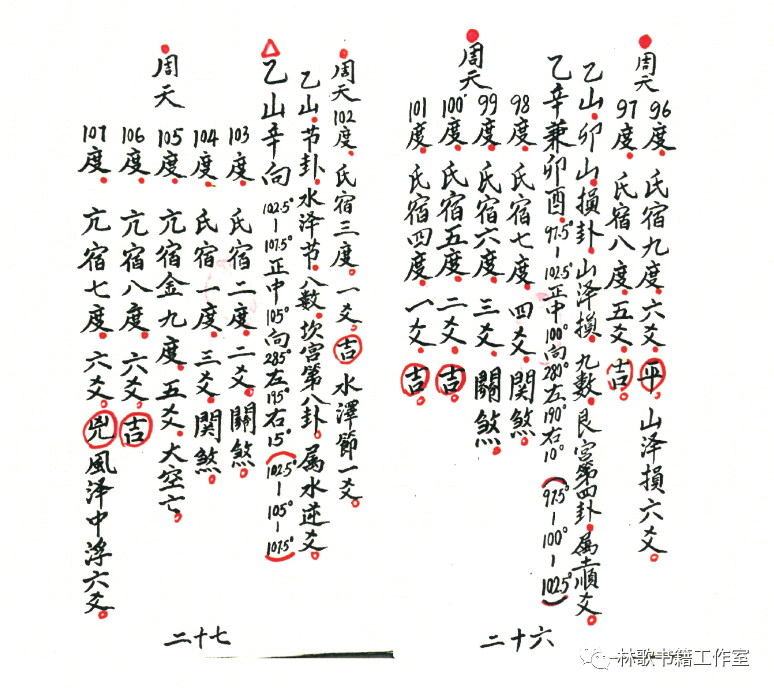 周天
96度。氐宿九度。六爻。平。山泽損六爻。
97度。氐宿八度。五爻。吉。
乙山。卯山。損卦。山泽損。九數。艮宫第四卦。属土順爻。
乙辛兼卯酉。97.5°—102.5°正中100°向280°左190°右10°(97.5°—100°—102.5°)
周天
98度。氐宿七度。四爻。関煞。
99度。氐宿六度。三爻。關煞。
100°度。氐宿五度。二爻。吉。
101度。氐宿四度。一爻。吉。
二十六
周天102度。氐宿三度。一爻。吉 水澤節一爻。
乙山。节卦。水泽节。八數。坎宫第八卦。属水逆爻。
乙山辛向 102.5°—107.5°正中105°向285°左195°右15°(102.5°—105°—107.5°)
周天
103度。氐宿二度。二爻。關煞。
104度。氐宿一度。三爻。関煞。
105度。亢宿金九度。五爻。大空亡。
106度。亢宿八度。六爻。吉。
107度。亢宿七度。六爻。兇 風泽中浮六爻。
二十七
林歌书籍工作室